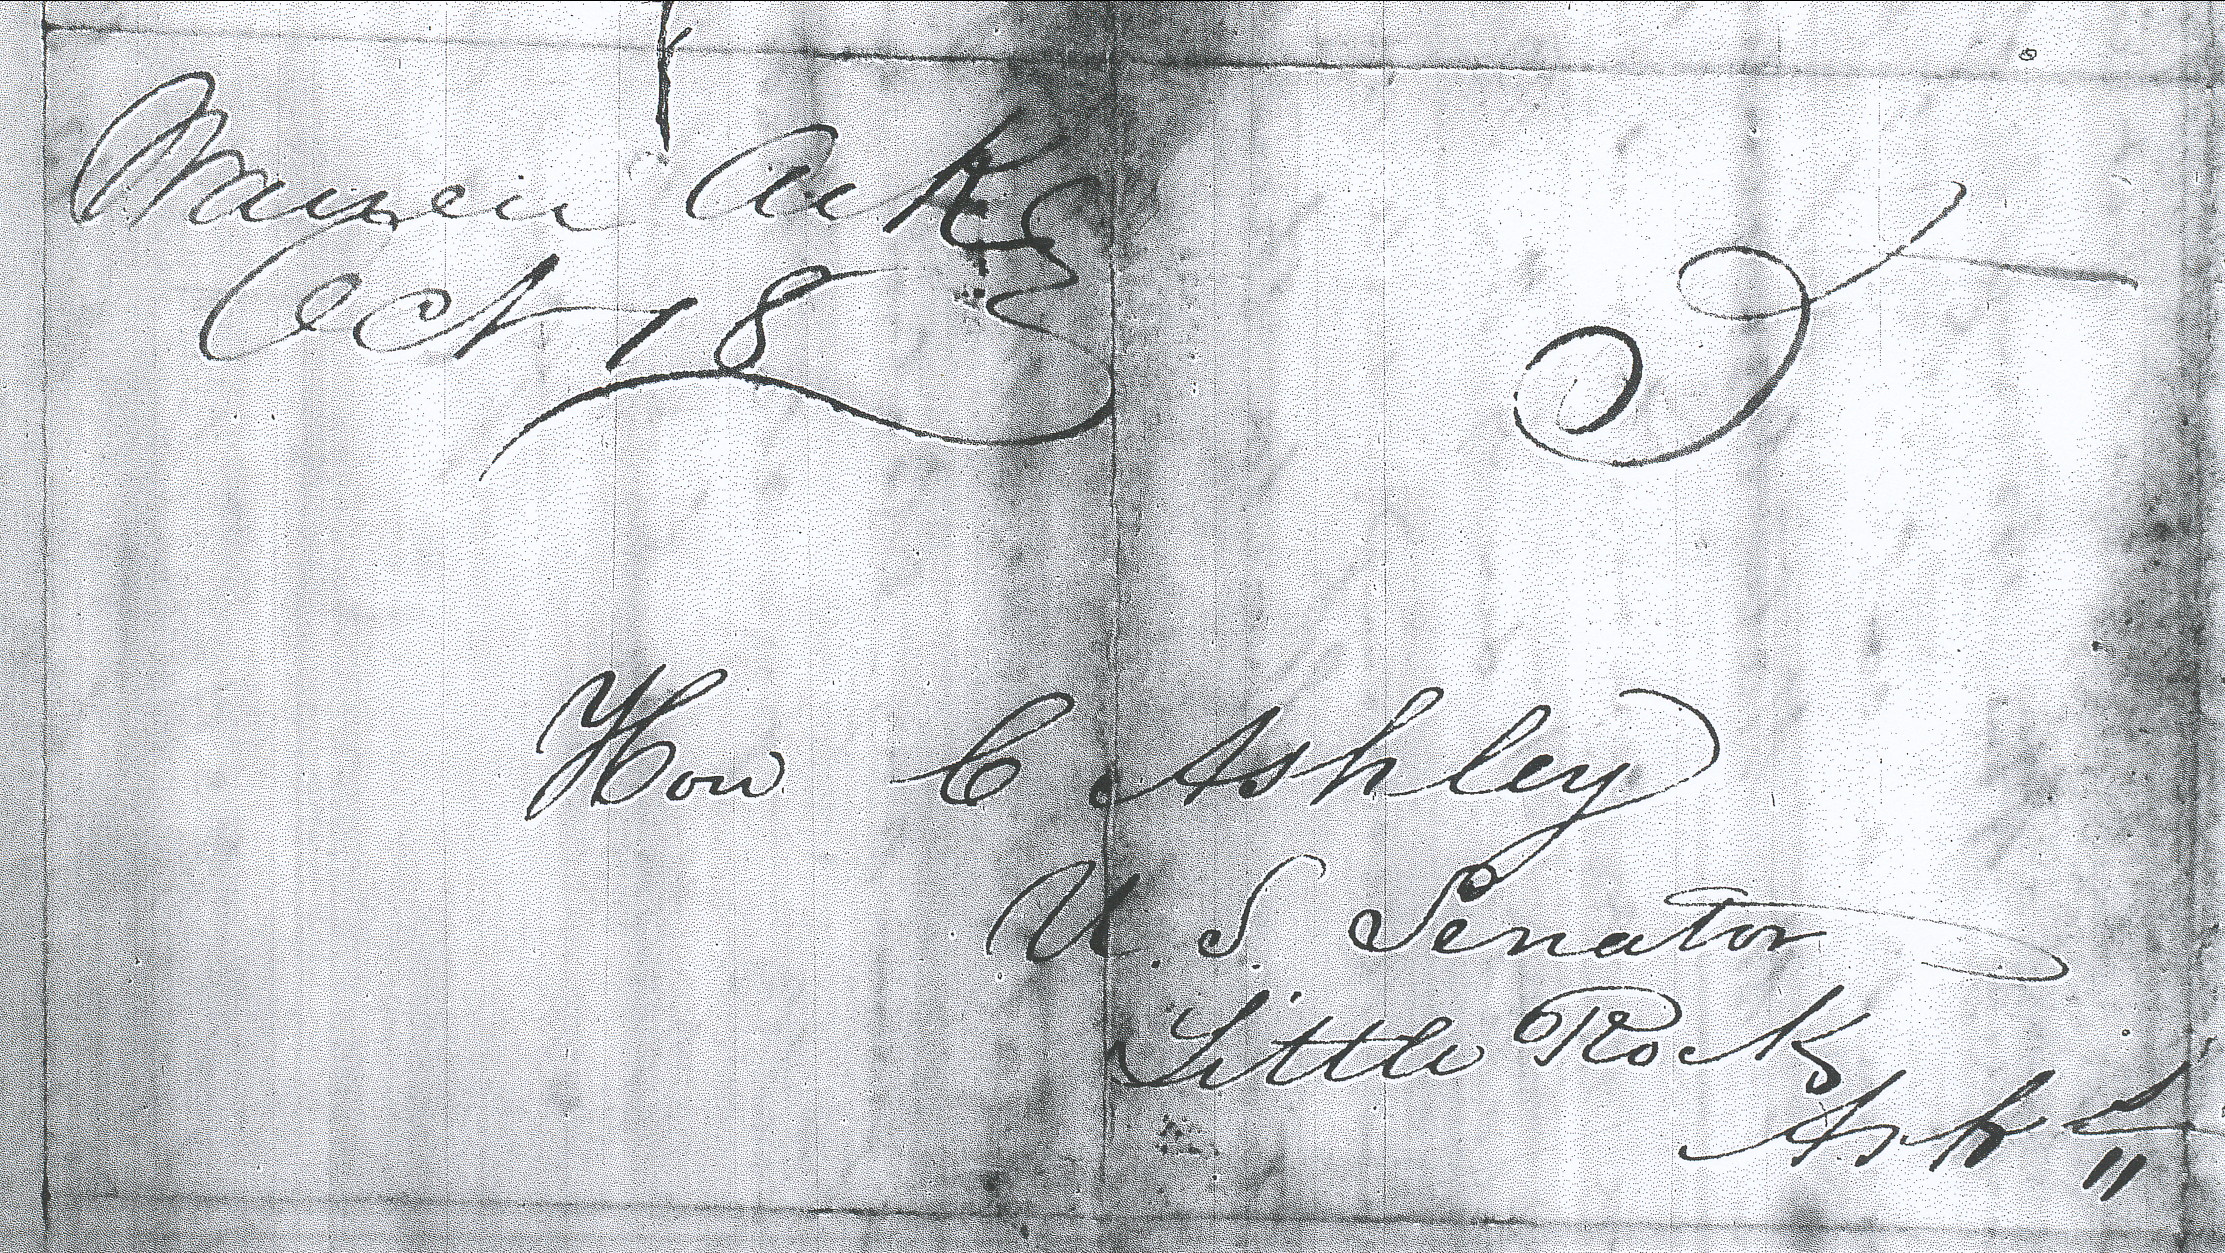 Warren Arks
Oct 18
5
Hon C Ashley
U. S. Senator
Little Rock
Arks